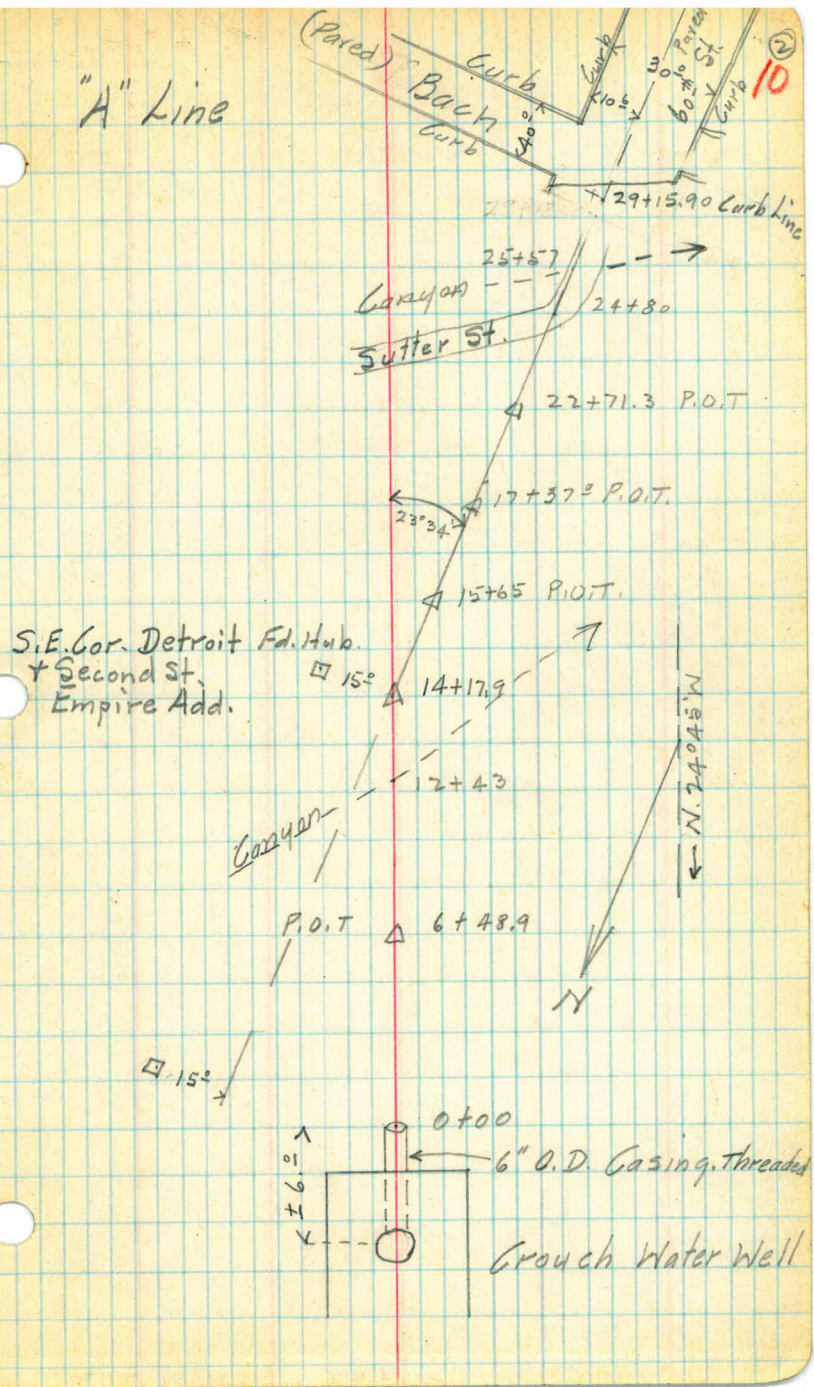 ②
10
"A" Line
(Paved)
Bach
Curb
Curb
40⁰
Curb
10⁶
30
60⁰ to Paved
St.
Curb
29+15.90 Curb Line
25+57
Canyon
24+80
Sutter St.
22+71.3 P.O.T
17+37⁰ P.O.T.
23°34'
15+65 P.O.T.
S.E. Cor. Detroit Fd. Hub.
+ Second St.
Empire Add.
15⁰
14+17.9
12+43
Canyon
N. 24°45'W
P.O.T
6+48.9
N
15⁰
0+00
±6.⁰
6" O.D. Casing. Threaded
Crouch Water Well